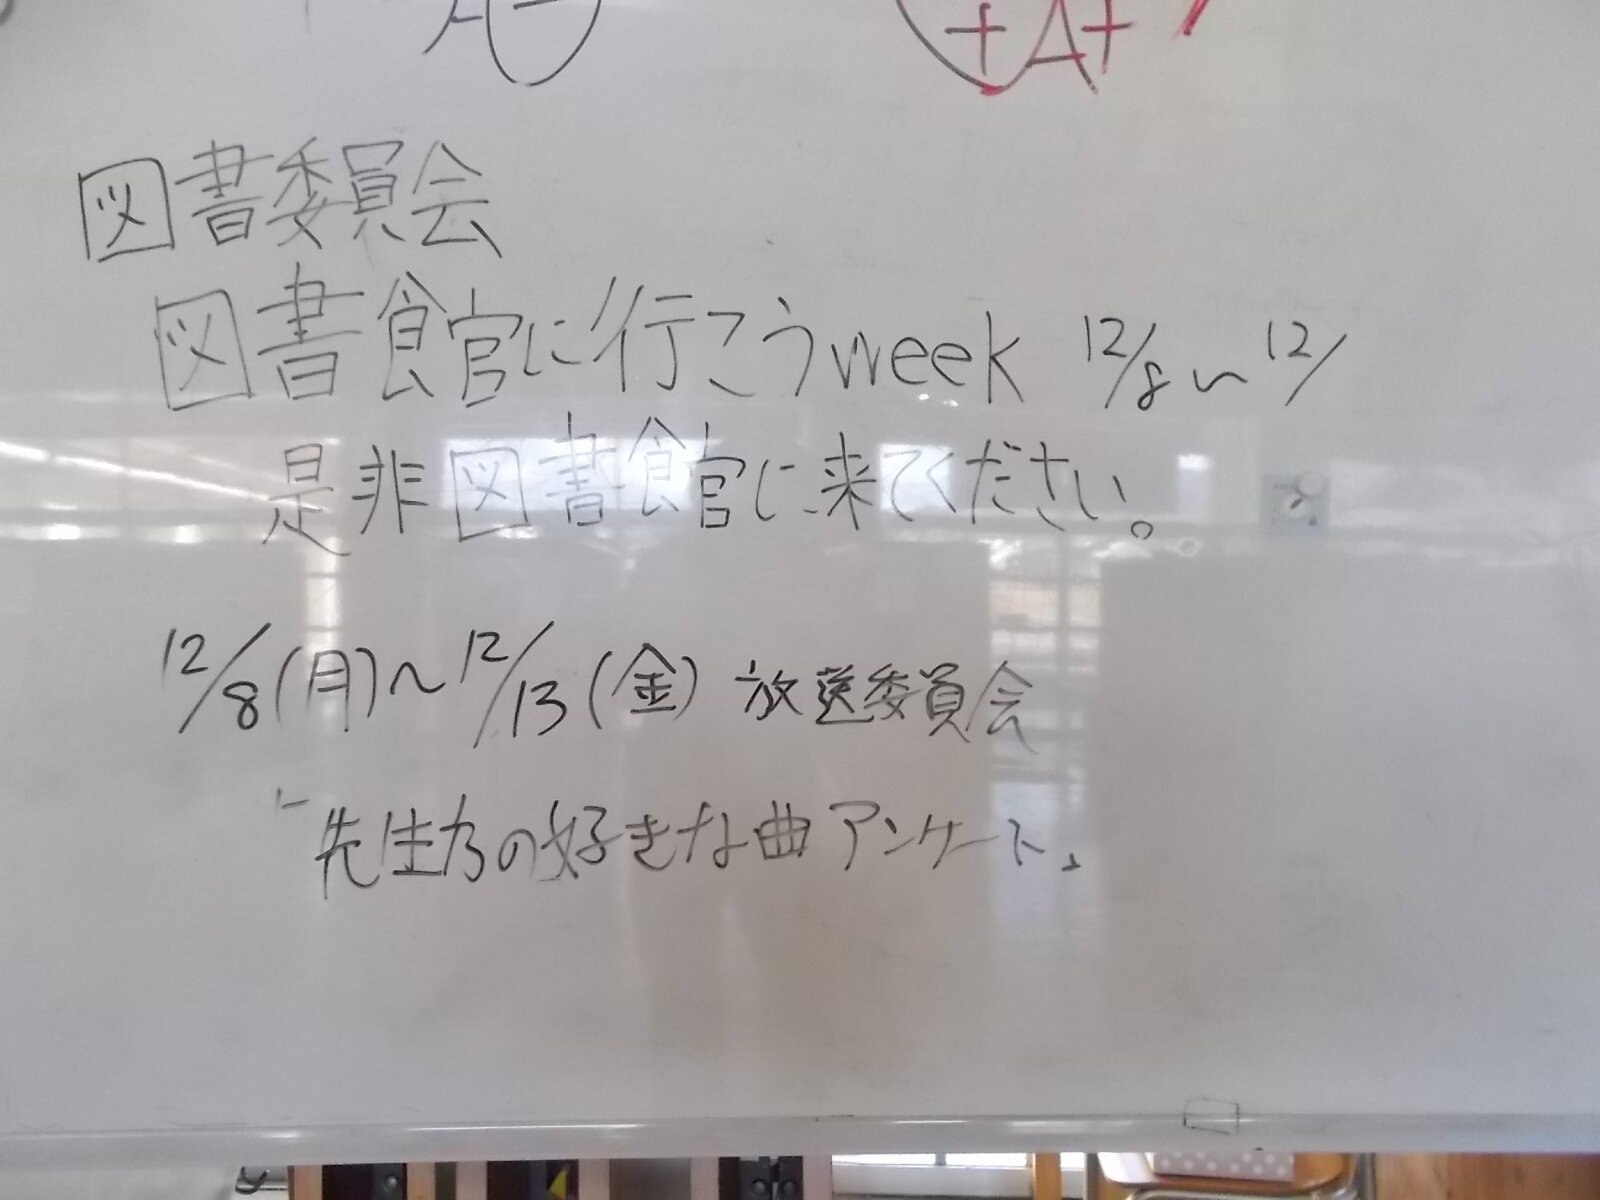 A-
+A+
図書委員会
図書館に行こうweek 12/8〜12/
是非図書館に来てください。
12/8(月)〜12/13(金) 放送委員会
「先生方の好きな曲アンケート」